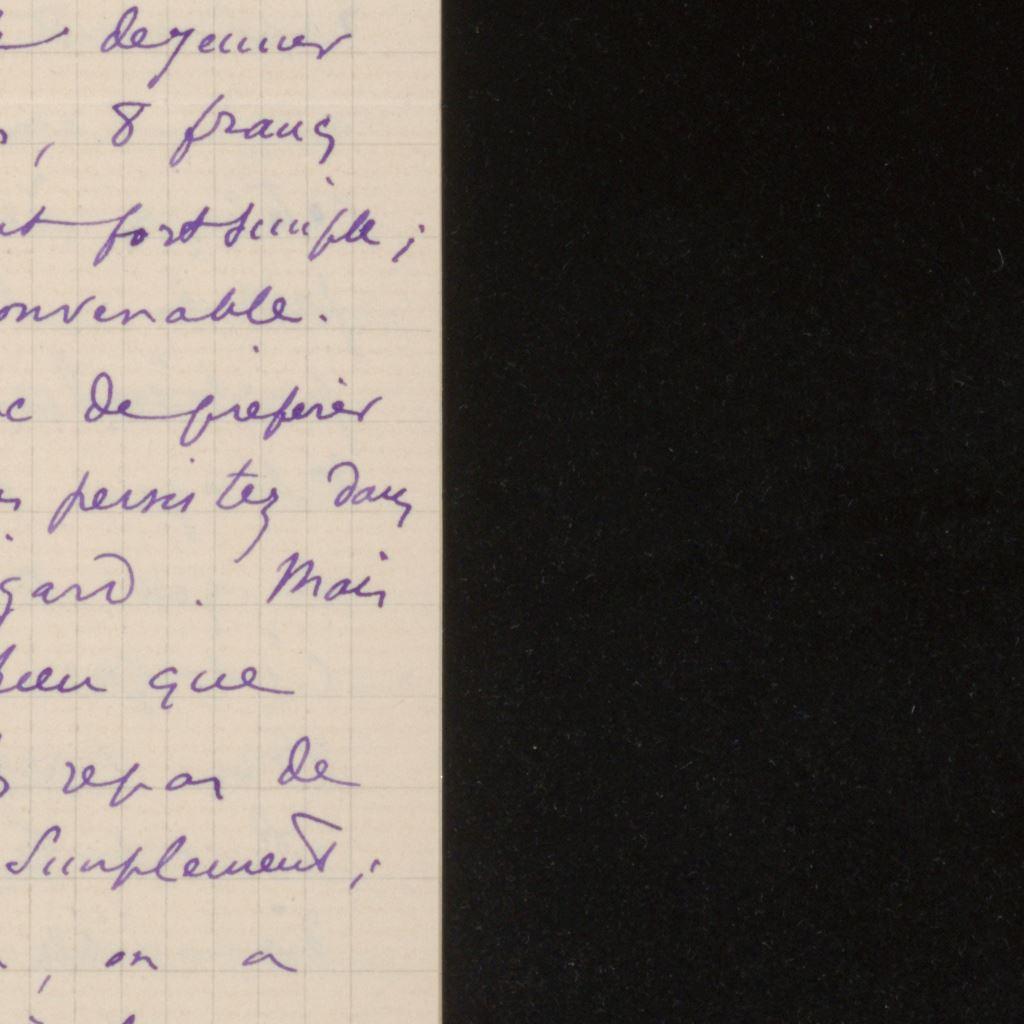 dejeuner
, 8 francs
fort simple ;
convenable.
de preferer
persistez dans
gard . Mais
bien que
repas de
Simplement ;
, on a